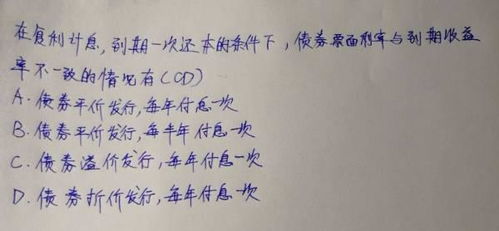 在复利计息，到期一次还本的条件下，债券票面利率与到期收益
率不一致的情况有(CD)
A. 债券平价发行，每年付息一次
B. 债券平价发行，每半年付息一次
C. 债券溢价发行，每年付息一次
D. 债券折价发行，每年付息一次